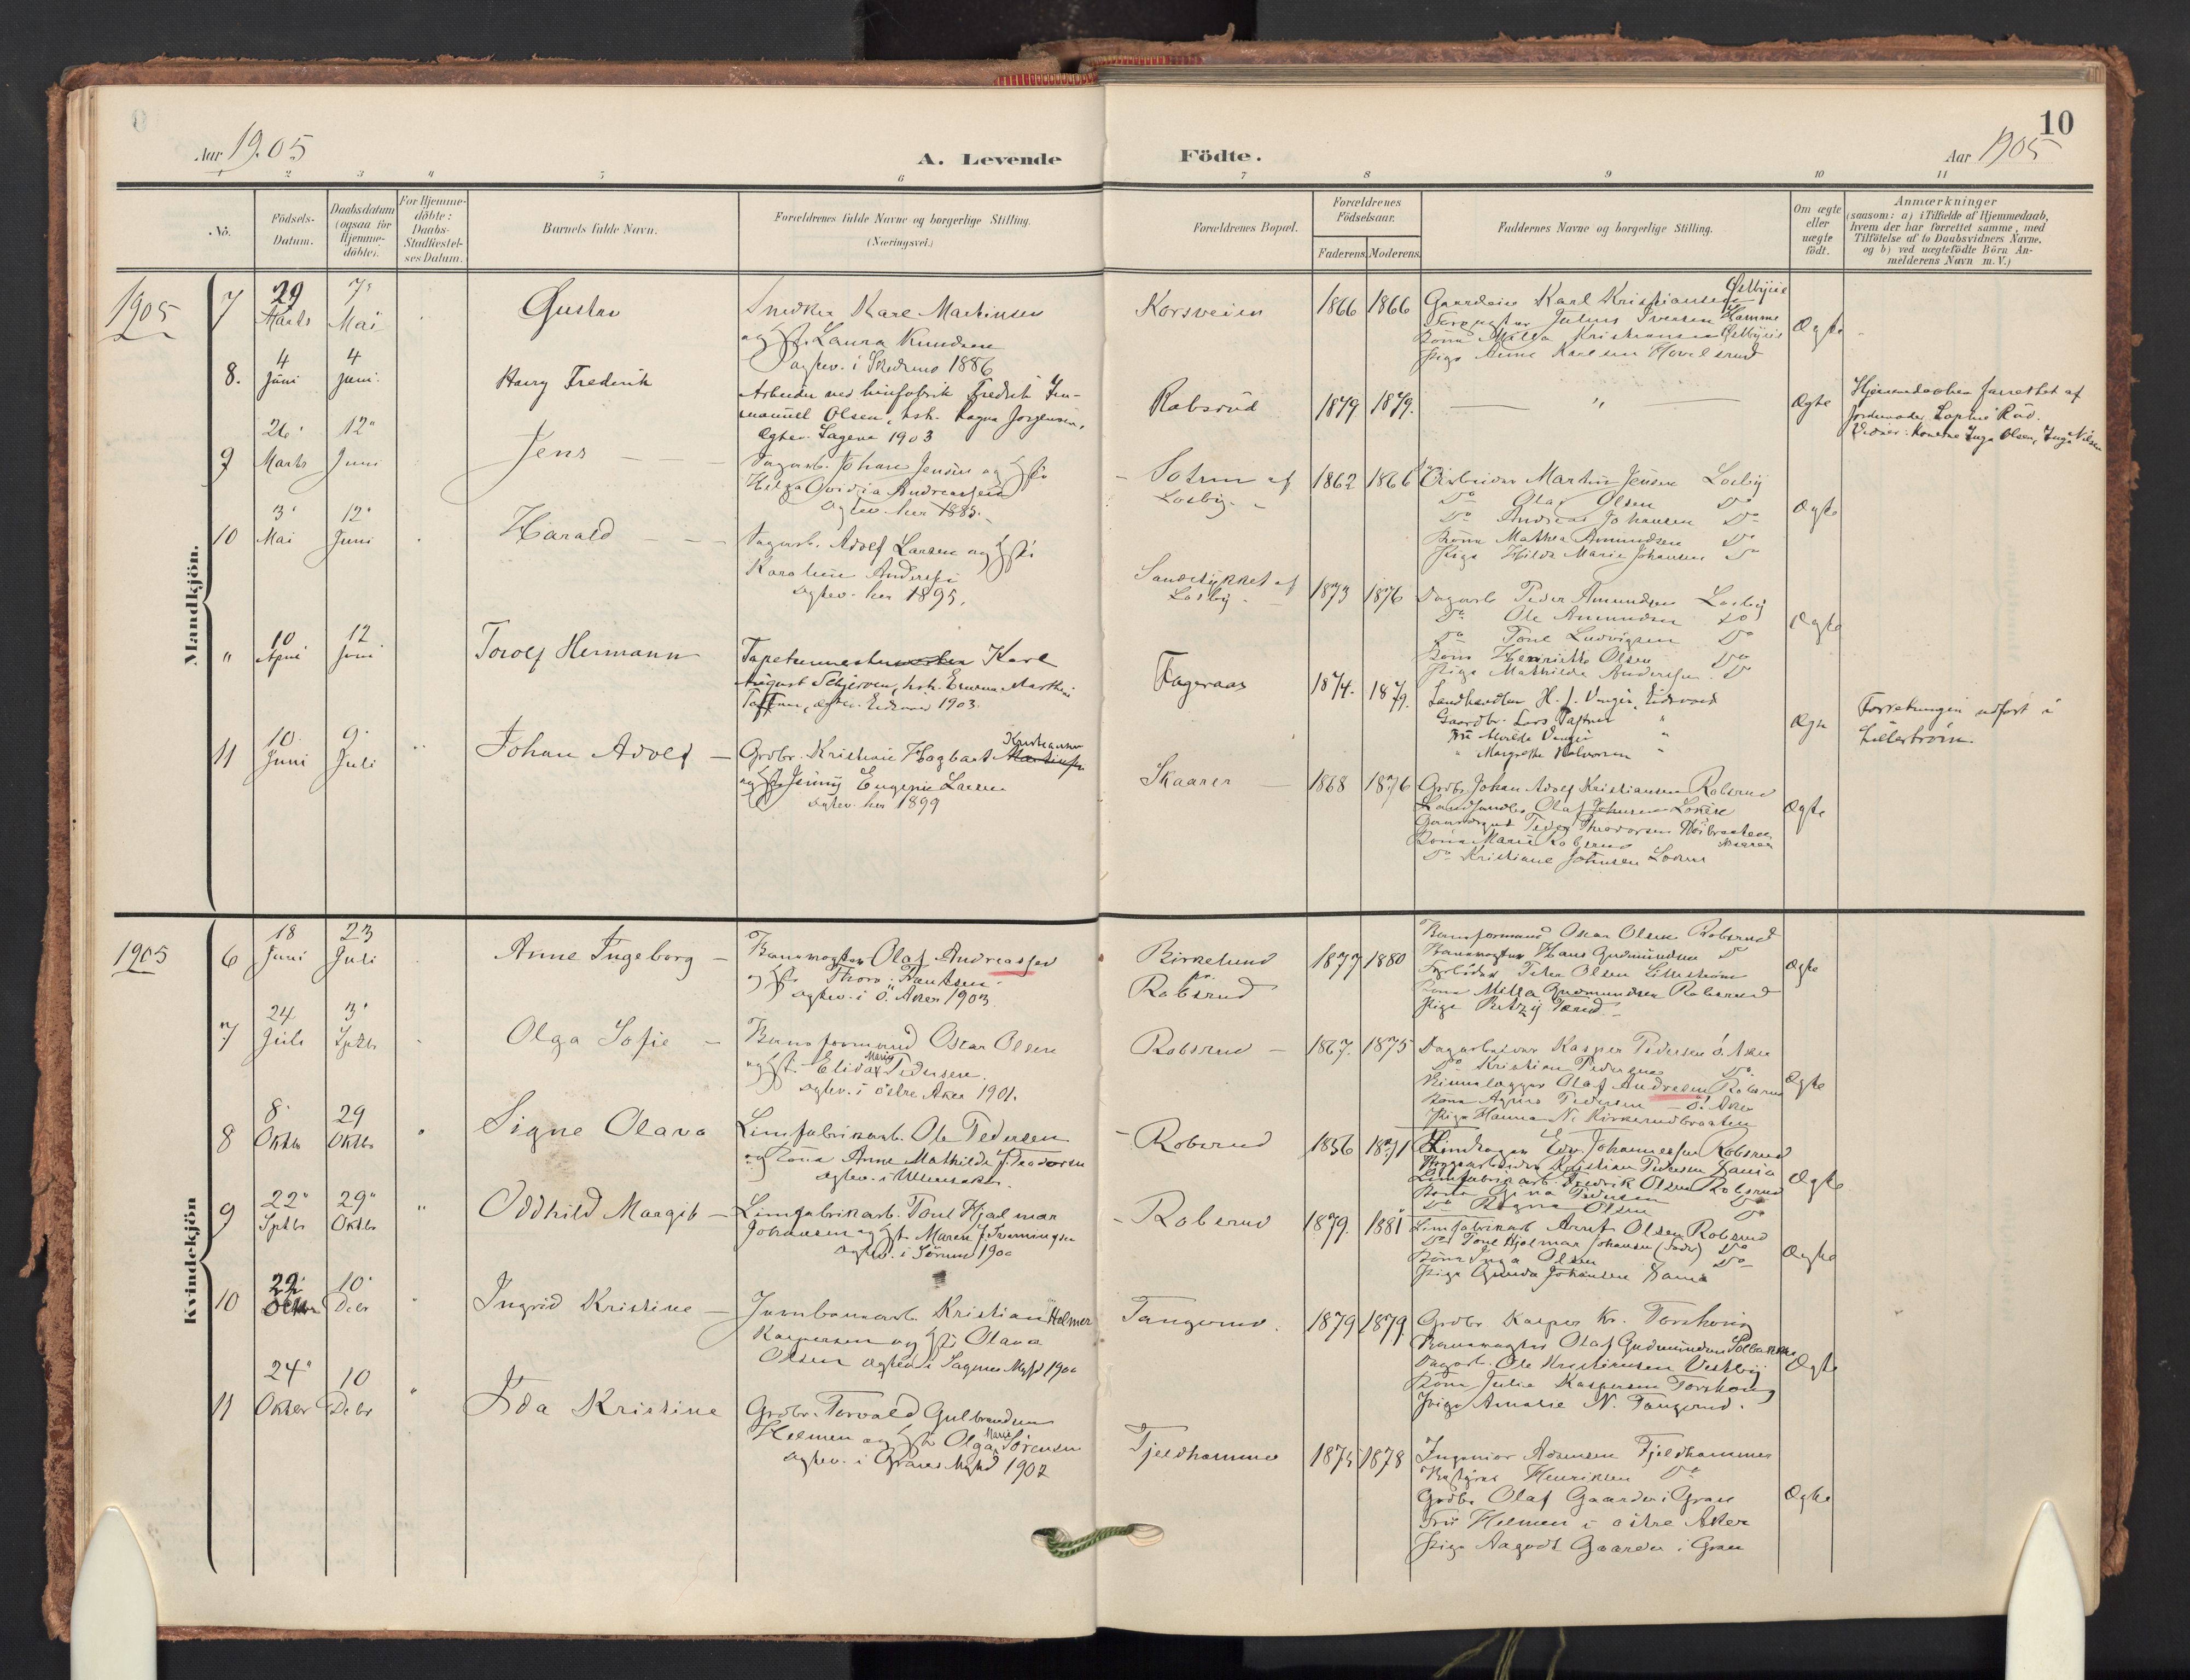 10
Aar 1905
A. Levende
Födte.
Aar 1905
1 2 3 4 5 6 7 8 9 10 11
No.
Födsels-Datum.
Daabsdatum (ogsaa for Hjemme-döbte).
For Hjemme-döbte: Daabs-Stadfæstel-ses Datum.
Barnets fulde Navn.
Forældrenes fulde Navne og borgerlige Stilling.
(Næringsvei.)
Forældrenes Bopæl.
Forældrenes Födselsaar.
Faderens. Moderens.
Faddernes Navne og borgerlige Stilling.
Om ægte eller uægte födt.
Anmærkninger
(saasom: a) i Tilfælde af Hjemmedaab,
hvem der har forrettet samme, med
Tilföielse af to Daabsvidners Navne,
og b) ved uægtefödte Börn An-
melderens Navn m. V.)
Mandkjön.
1905
7
29 Marts
7 Mai
Gustav
Snedker Karl Martinsen
og Hst. Laura Knudsen
Ægtev. i Skedsmo 1886
Korsveien
1866 1866
Gaardeier Karl Kristiansen Østbyeie
Forpagter Julius Iversen Hamme
Kona Milda Kristiansen Østbyeie
Pige Anne Karlsen Hovelsrud
Ægte
8.
4 Juni
4 Juni.
Harry Frederik
Arbeider ved limfabrik Fredrik Im-
manuel Olsen, hst. Ragna Jørgensen,
Ægtev. Sagene 1903
Robsrud
1879 1879.
— " —
Ægte
Hjemmedaaben forrettet af
Jordmoder Sophie Rud.
Vidner: Konerne Inga Olsen, Inga Nilsen
9
26 Marts
12 Juni
Jens
Dagarb. Johan Jensen og Hst.
Helga Ovidia Andreassen
Ægtev. her 1885.
Sotrum af
Losby
1862 1866
Arbeider Martin Jensen Losby
Do Olaf Olsen Do
Do Andreas Johansen Do
Kona Mathea Amundsen Do
Pige Hilda Marie Johansen Do
Ægte
10
3 Mai
12 Juni
Harald
Dagarb. Adolf Larsen og Hst.
Karoline Anderse
Ægtev. her 1895.
Sandstykket af
Losby
1873 1876
Dagarb Peder Amundsen Losby
Do Ole Amundsen Do
Do Tonl Ludvigsen Do
Kona Henriette Olsen Do
Pige Mathilde Andersen Do
Ægte
"
10 April
12 Juni
Torolf Hermann
Tapetmester Karl
August Schjerven, hst. Emma Marthea
Taftum, ægtev. Eidsvold 1903.
Fageraas
1874. 1879.
Landhandler H. J. Vengen, Eidsvold
Gaardbr. Lars Taftner "
Fru Thilda Vengen "
" Margrethe Halvorsen "
Ægte
Forretningen udført i
Lilleström
11
10 Juni
9 Juli
Johan Adolf
Grdbr. Kristian Hagbart Kristiansen
og Hst. Jenny Eugenie Larsen
Ægtev. her 1899
Skaarer
1868 1876
Grdbr. Johan Adolf Kristiansen Robsrud
Landhandler Olaf Johnsen Loken
Gaardsgut Peder Theodorsen Høibraaten
Kona Marie Robsrud
Do Kristiane Johnsen Loken
Ægte
Kvindekjön
1905
6
18 Juni
23 Juli
Anne Ingeborg
Banevogter Olaf Andreassen
og Hst. Thora Frantsen
Ægtev. i Ö. Aker 1903.
Birkelund
pr.
Robsrud
1877 1880
Baneformand Oscar Olsen Robsrud
Banevogter Hans Gudmundsen Do
Peter Olsen Lilleström
Kona Milla Gudmundsen Robsrud
Pige Betzy
Ægte
7
24 Juli
3 Septbr
Olga Sofie
Baneformand Oscar Olsen
og Hst. Elida Marie Pedersen.
Ægtev. i östre Aker 1901.
Robsrud
1867. 1875
Dagarbeider Kasper Pedersen ö. Aker
Do Kristian Pedersen Do
Olaf Andresen Robsrud
Kona Agnes Pedersen — ö. Aker
Pige Hanna N. Kirkerudbraaten
Ægte
8
8 Oktbr
29 Oktbr
Signe Olava
Limfabrikarb. Ole Pedersen
og Kona Anne Mathilde Theodorsen
Ægtev. i Ullensaker.
Robsrud
1856 1871
Edv. Johannessen Robsrud
Kristian Pedersen Hania
Limfabrikarb. Fredrik Olsen Robsrud
Kona Gina Pedersen Do
Do Ragna Olsen Do
Ægte
9
22 Septbr
29 Oktbr
"
Oddhild Maagit
Limfabrikarb. Tonl Hjalmar
Johansen og Hst. Maren J. Svenningsen
Ægtev. i Sörum 1900
Robsrud
1879. 1881
Limfabrikarb Arnt Olsen Robsrud
Do Tonl Hjalmar Johansen (fader) Do
Kona Inga Olsen Do
Pige Gunda Johansen Hania
Ægte
10
22 Oktbr
10 Debr
Ingrid Kristine
Jernbanearb. Kristian Helmer
Kaspersen og Hst. Olava
Olsen Ægtev. i Sagenes Mgh 1900
Tangerud.
1879 1879.
Grdbr. Kasper Kr. Torshong
Banevogter Olaf Gudmundsen Solbakken
Dagarb. Ole Kristiansen Vestby
Kona Julie Kaspersen Torshong
Pige Amalie N. Tangerud.
Ægte
11
24 Oktbr
10 Debr
"
Ida Kristine
Grdbr. Torvald Gulbrandsen
Helmen og Hst. Olga Marie Sörensen
Ægtev. i Grans Mghd 1902
Fjeldhammer
1875 1878
Ingeniør Adensen Fjeldhammer
Bestyrer Henriksen Do
Grdbr. Olaf Gaarder i Gran
Fru Helmen i östre Aker
Pige Aagodt Gaarder i Gran
Ægte